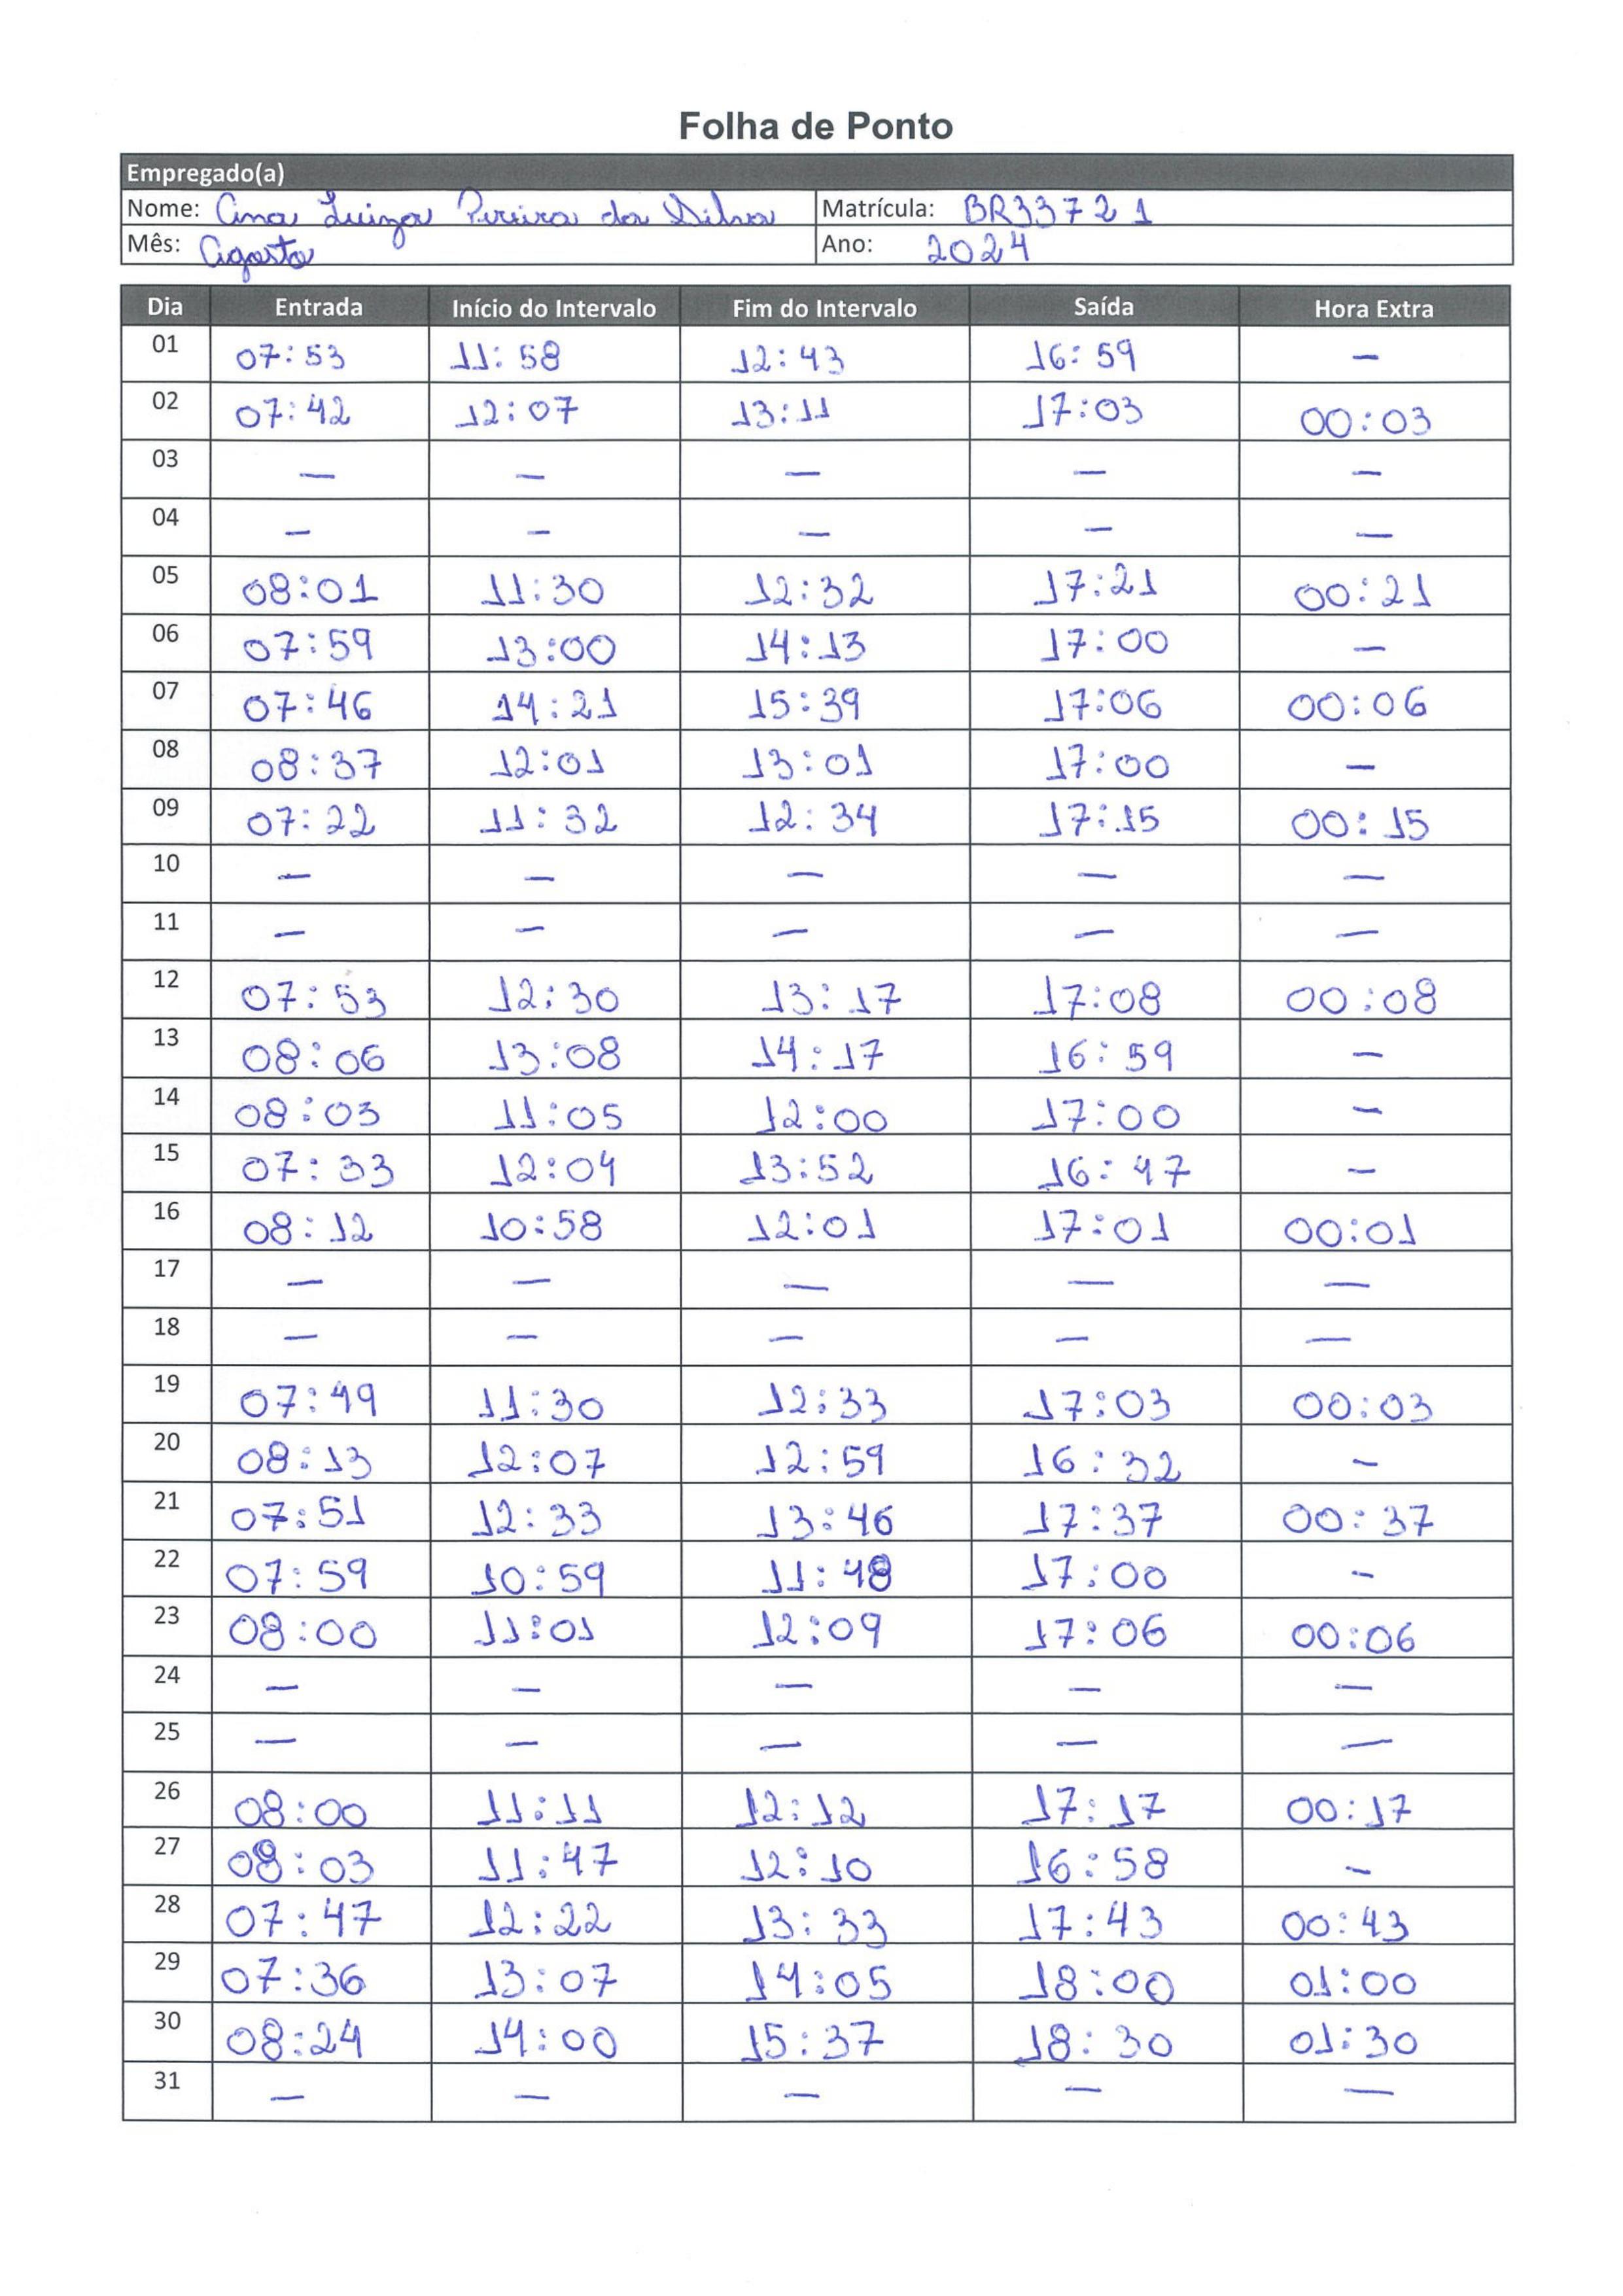 Folha de Ponto
Empregado(a)
Nome: Ana Luiza Pereira da Silva Matrícula: BR33721
Mês: Agosto Ano: 2024
Dia Entrada Início do Intervalo Fim do Intervalo Saída Hora Extra
01 07:53 11:58 12:43 16:59 —
02 07:42 12:07 13:11 17:03 00:03
03 — — — — —
04 — — — — —
05 08:01 11:30 12:32 17:21 00:21
06 07:59 13:00 14:13 17:00 —
07 07:46 14:21 15:39 17:06 00:06
08 08:37 12:01 13:01 17:00 —
09 07:22 11:32 12:34 17:15 00:15
10 — — — — —
11 — — — — —
12 07:53 12:30 13:17 17:08 00:08
13 08:06 13:08 14:17 16:59 —
14 08:03 11:05 12:00 17:00 —
15 07:33 12:04 13:52 16:47 —
16 08:12 10:58 12:01 17:01 00:01
17 — — — — —
18 — — — — —
19 07:49 11:30 12:33 17:03 00:03
20 08:13 12:07 12:59 16:32 —
21 07:51 12:33 13:46 17:37 00:37
22 07:59 10:59 11:48 17:00 -
23 08:00 11:01 12:09 17:06 00:06
24 — — — — —
25 — — — — —
26 08:00 11:11 12:12 17:17 00:17
27 08:03 11:47 12:10 16:58 —
28 07:47 12:22 13:33 17:43 00:43
29 07:36 13:07 14:05 18:00 01:00
30 08:24 14:00 15:37 18:30 01:30
31 — — — — —